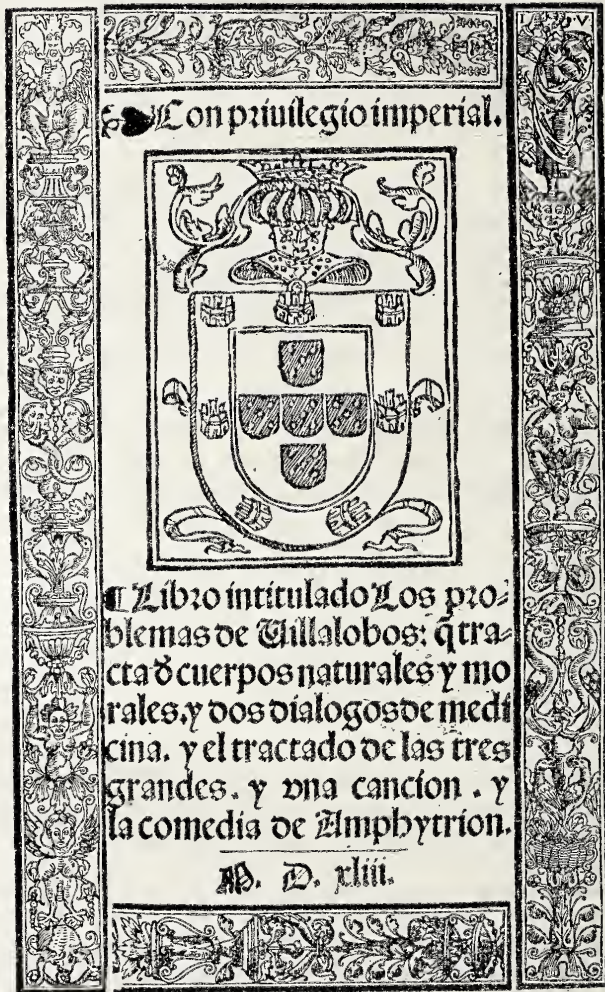 I V
Con priuilegio imperial.
¶ Libro intitulado Los pro⸗
blemas de Uillalobos: q̃ tra⸗
cta d̓ cuerpos naturales y mo
rales. y dos dialogos de medi
cina. y el tractado de las tres
grandes. y vna cancion. y
la comedia de Amphytrion.
M. D. xliii.